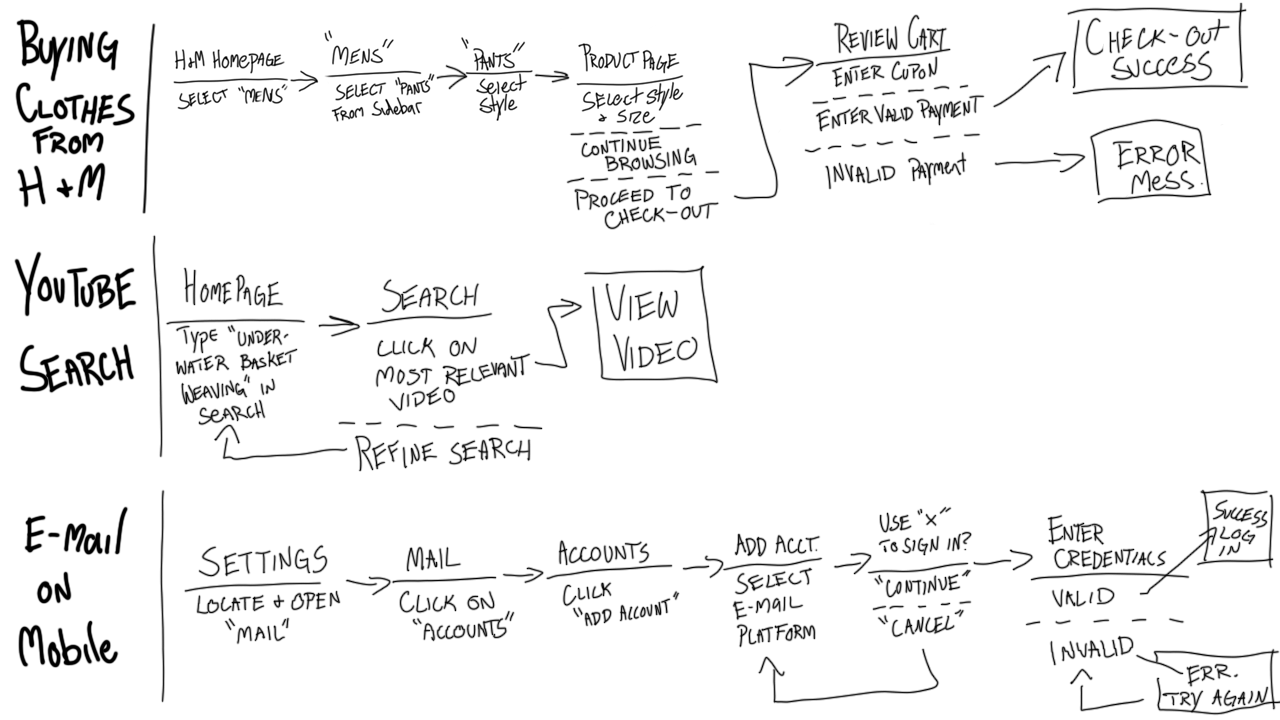 BUYING
CLOTHES
FROM
H+M
H+M HOMEPAGE
SELECT "MENS"
"MENS"
SELECT "PANTS"
FROM Sidebar
"PANTS"
Select
Style
PRODUCT PAGE
SELECT Style
+ SIZE
CONTINUE
BROWSING
PROCEED TO
CHECK-OUT
REVIEW CART
ENTER CUPON
ENTER VALID PAYMENT
INVALID Payment
CHECK-OUT
SUCCESS
ERROR
MESS.
YOUTUBE
SEARCH
HOMEPAGE
TYPE "UNDER-
WATER BASKET
WEAVING" IN
SEARCH
SEARCH
CLICK ON
MOST RELEVANT
VIDEO
REFINE SEARCH
VIEW
VIDEO
E-Mail
ON
Mobile
SETTINGS
LOCATE + OPEN
"MAIL"
MAIL
CLICK ON
"ACCOUNTS"
ACCOUNTS
CLICK
"ADD ACCOUNT"
ADD ACCT.
SELECT
E-MAIL
PLATFORM
USE "X"
TO SIGN IN?
"CONTINUE"
"CANCEL"
ENTER
CREDENTIALS
VALID
INVALID
SUCCESS
LOG
IN
ERR.
TRY AGAIN